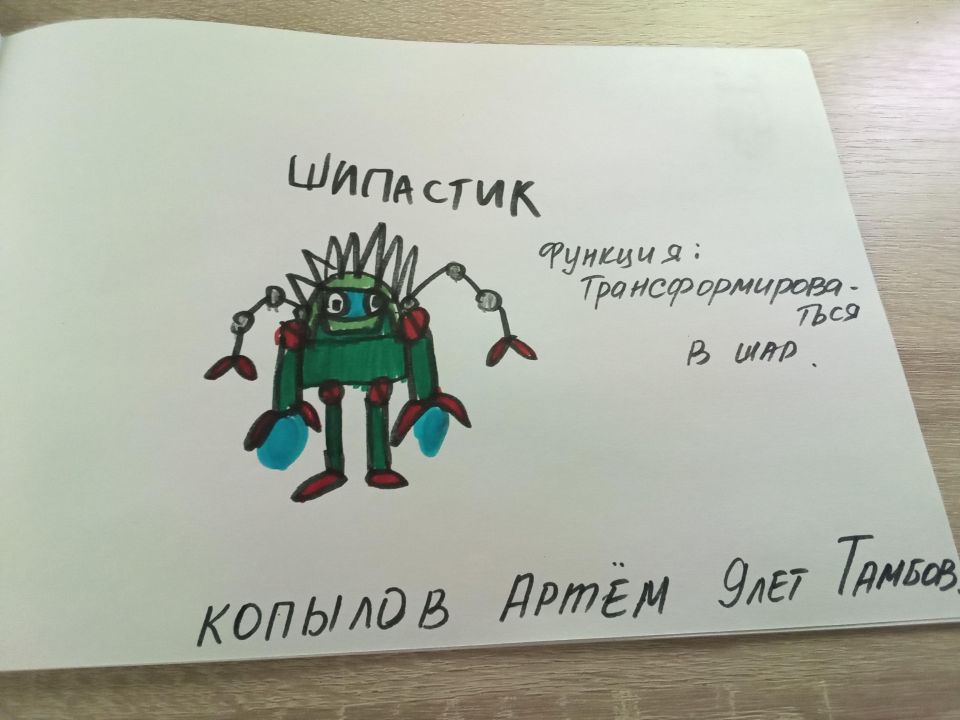 ШИПАСТИК
Функция:
Трансформирова-
ться
в шар.
КОПЫЛОВ АРТЁМ 9лет ТАМБОВ.